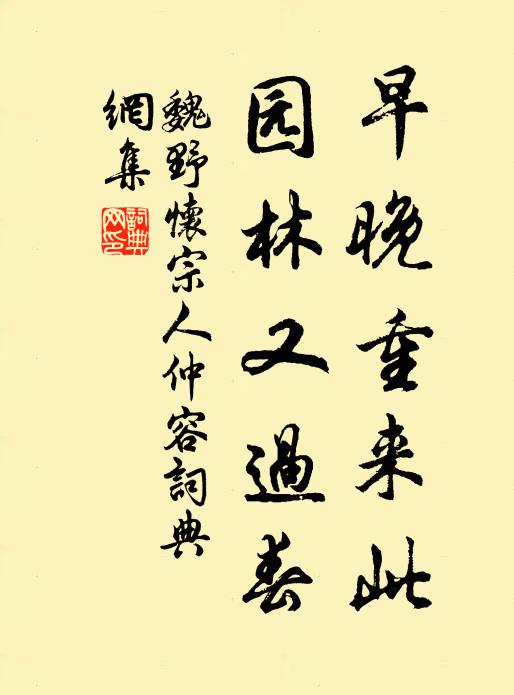 早晚重来此
园林又過春
魏野懷宗人仲容詞典
網集
詞典网印